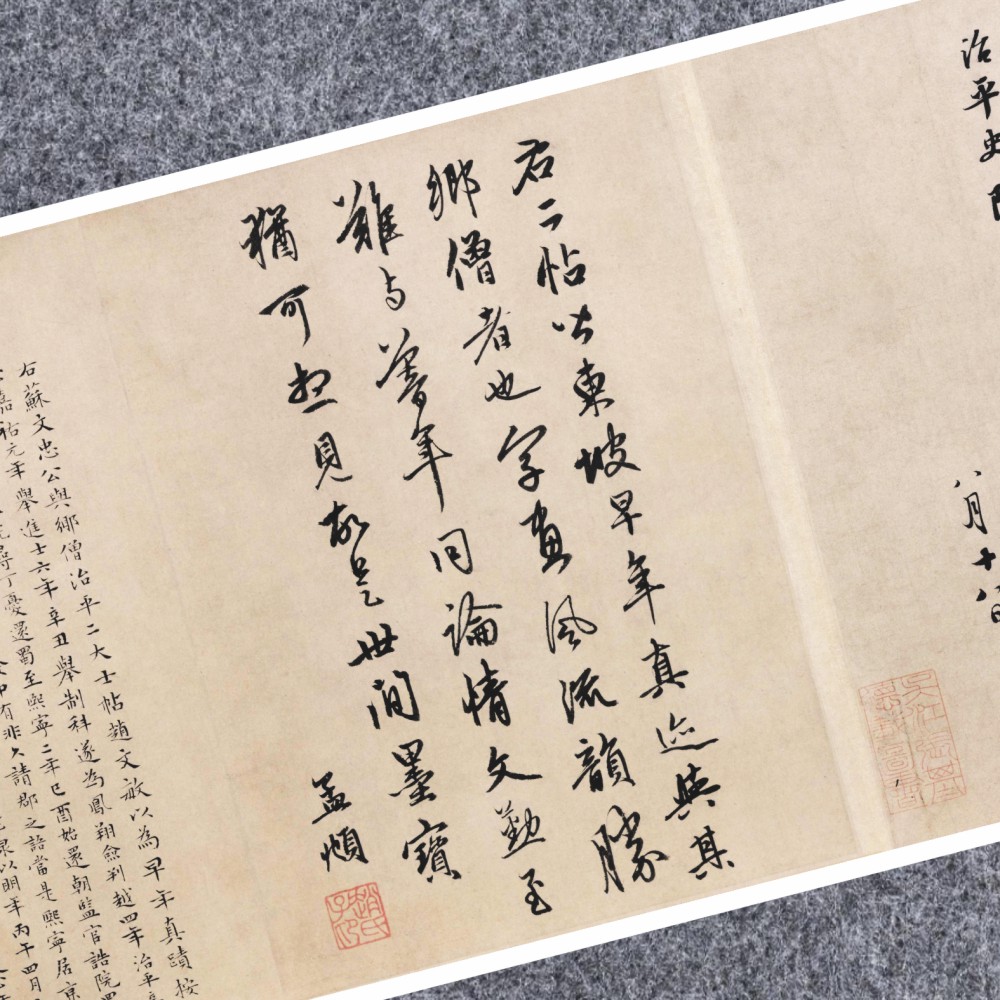 治平史
八月十八日
右二帖皆東坡早年真迹與其
鄉僧者也字畫風流韻勝
難与暮年同論情文勤至
猶可想見故是世間墨寶
孟頫
趙氏子昂
右蘇文忠公與鄉僧治平二大士帖趙文敏以為早年真蹟按
嘉祐元年舉進士六年辛丑舉制科遂為鳳翔僉判越四年治平
丁憂還蜀至熙寧二年己酉始還朝監官誥院
中有非久請郡之語當是熙寧居京
以明年丙午四月